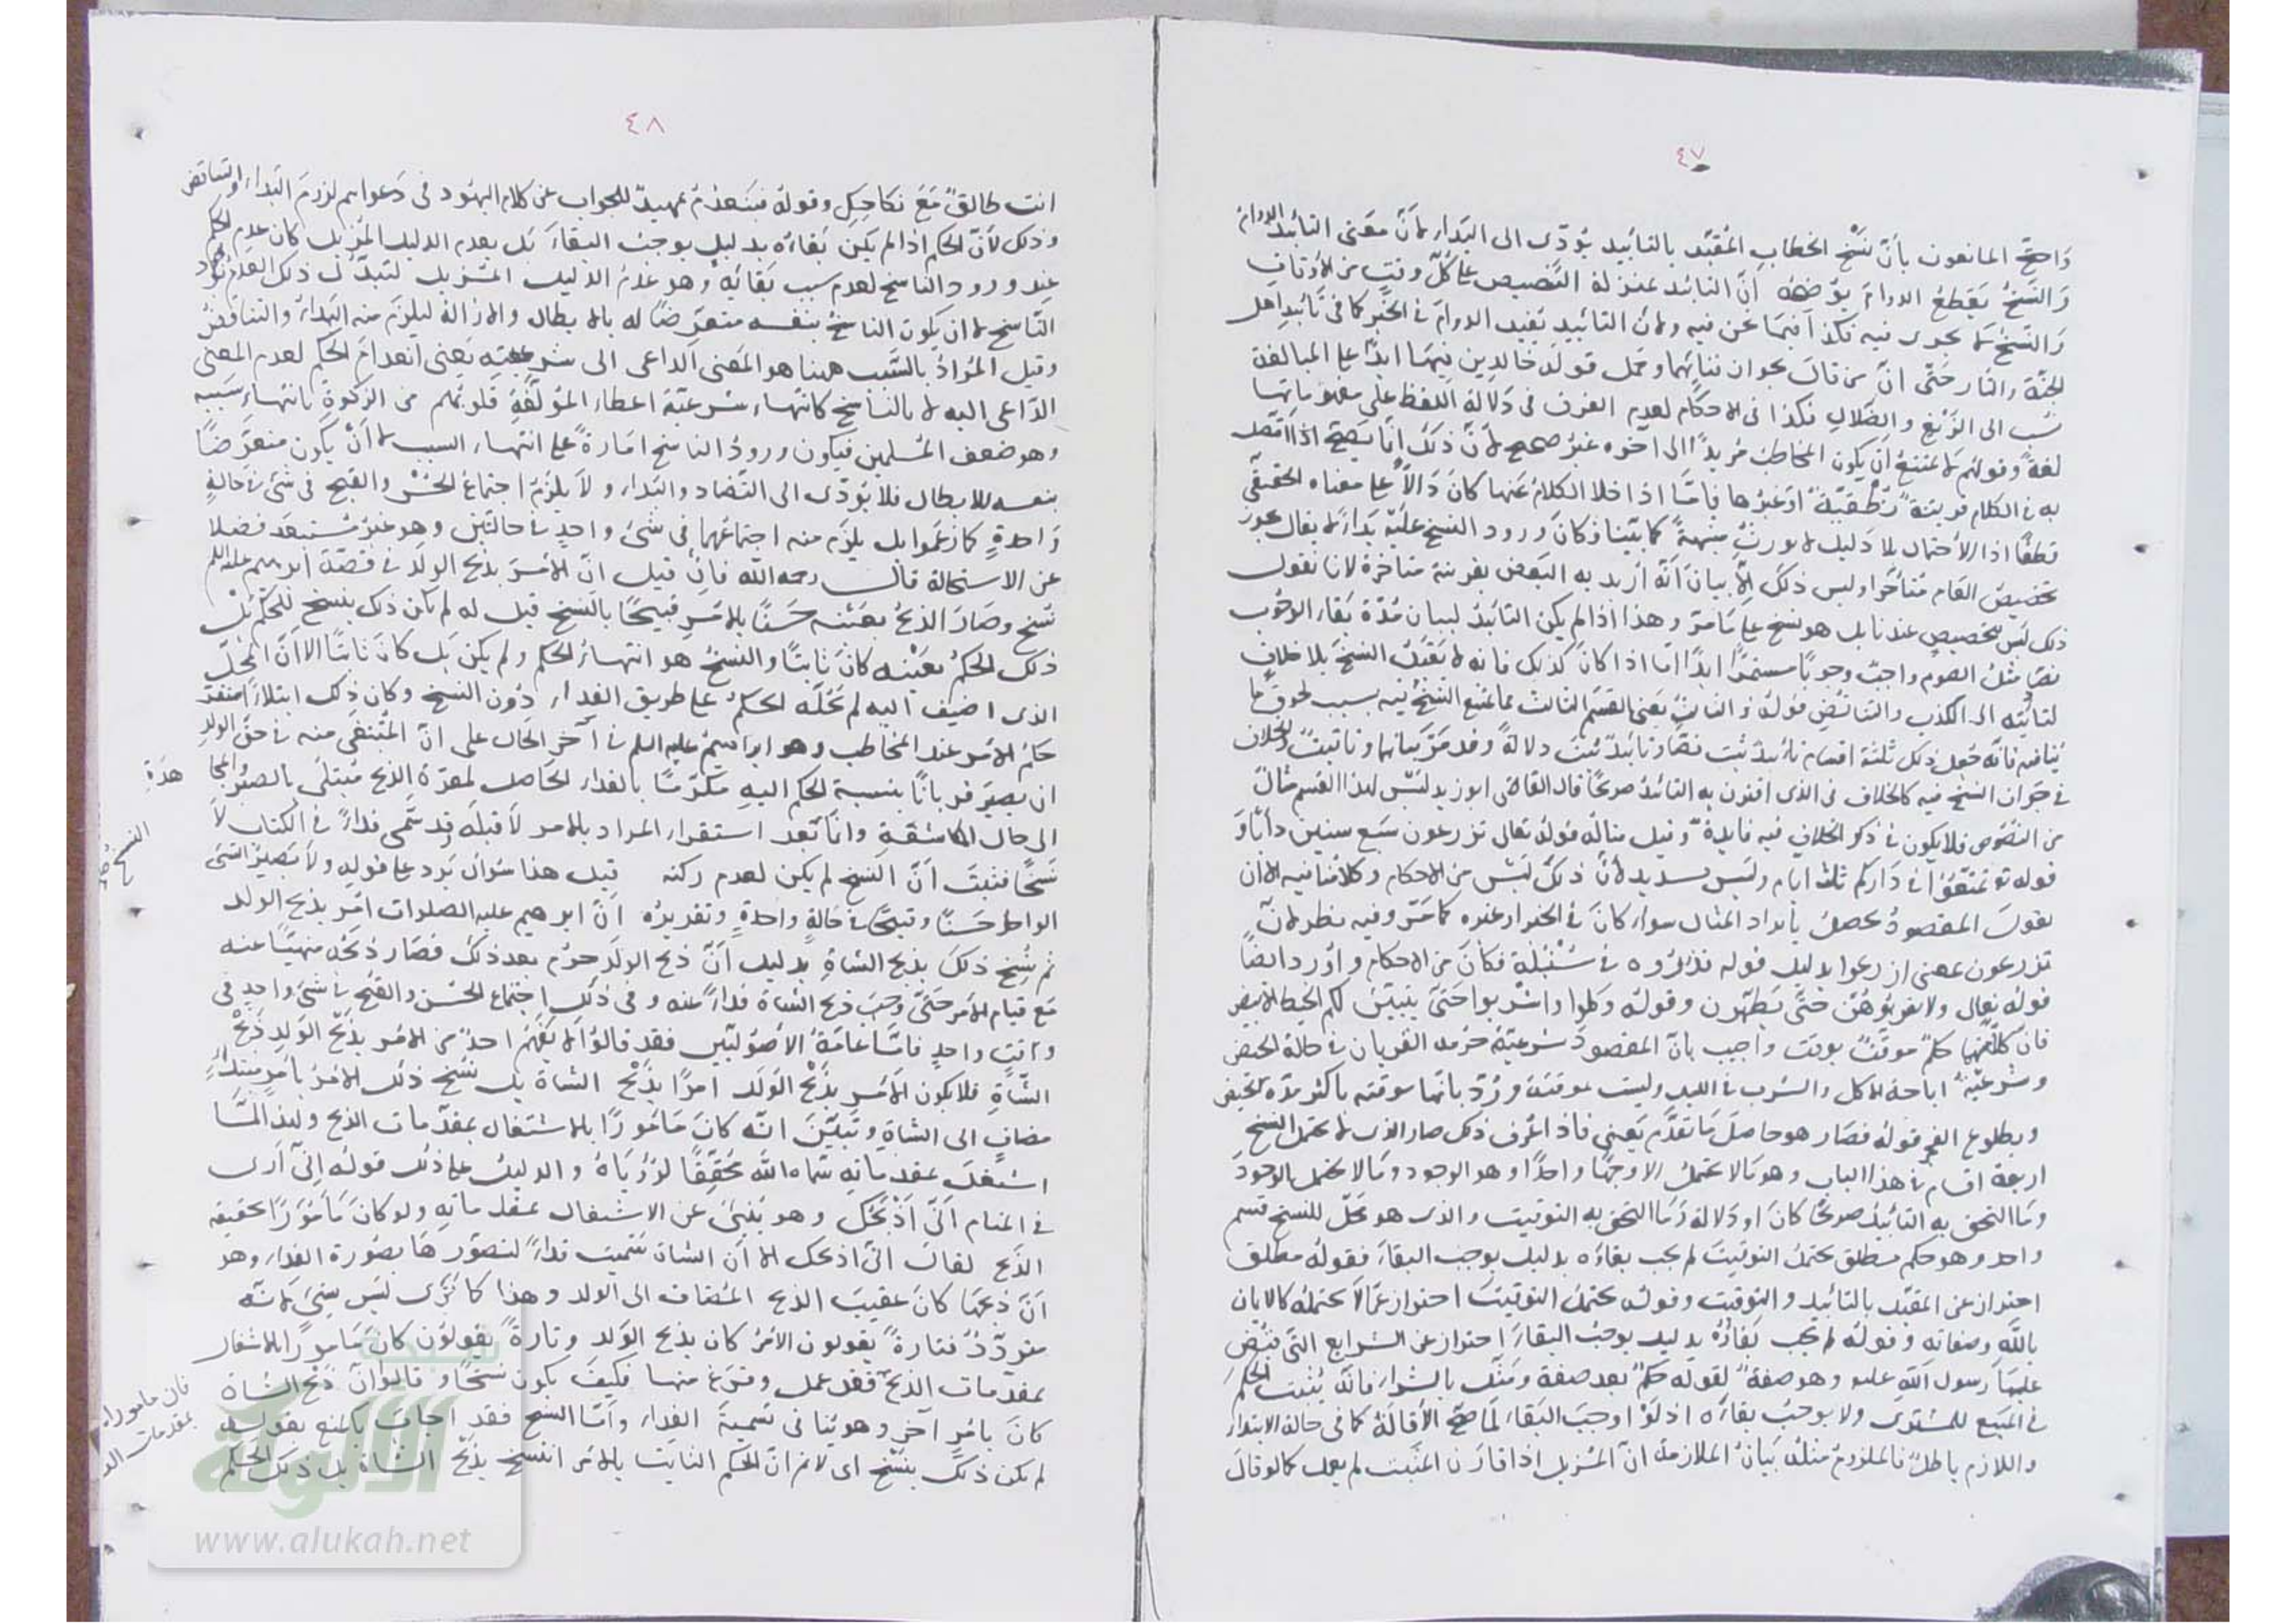 ٤٧
واحتج المانعون بأنّ نسخ الخطاب المقيّد بالتأبيد يؤدّى الى البَداء لأنّ معنى التأبيد الدوام
والنسخُ يقطعُ الدوامَ يوضحُه انّ التأبيد بمنزلة التنصيص على كلّ وقتٍ من الأوقات
والنسخ لا يجرى فيه فكذا فيما نحن فيه ولأن التأبيد يفيد الدوام فى الخبر كما فى تأبيد اهل
الجنّة والنار حتّى انّ من قال بجواز فنائهما وحمل قوله خالدين فيها ابدًا على المبالغة
نُسب الى الزيغ والضلال فكذا فى الاحكام لعدم الفرق فى دلالة اللفظ على مفهوماتها
لغةً وقولهم لا يمتنع ان يكون المخاطِب مُريدًا الى اخره غير صحيح لأنّ ذلك انّما يصحّ اذا اتّصل
به فى الكلام قرينة نطقيّة او غيرها فامّا اذا خلا الكلامُ عنها كان دالًّا على معناه الحقيقى
قطعًا اذ الاحتمال بلا دليل لا يورث شبهةً كما بيّنا فكان ورود النسخ عليه بداءً لا يقال يجوز
تخصيص العام متأخرا وليس ذلك الّا بيانَ انّه أُريد به البعض بقرينة متاخرة لانا نقول
ذلك ليس بتخصيص عندنا بل هو نسخ على ما مرّ وهذا اذا لم يكن التأبيد لبيان مُدّة بقاء الوجوب
نصّا مثل الصوم واجبٌ وجوبًا مستمرًّا ابدًا امّا اذا كان كذلك فانه لا يقبل النسخ بلا خلاف
لتأديته الى الكذب والتناقض قوله والثالث يعنى القسم الثالث مما يمتنع النسخ فيه بسبب لحوق ما
ينافيه فانّه جعل ذلك ثلثة اقسام تابيدٌ ثبت نصّا وتأبيدٌ ثبت دلالةً وقد مرّ بيانهما وتاقيتٌ والخلاف
فى جواز النسخ فيه كالخلاف فى الذى اقترن به التأبيد صريحًا قال القاضى ابو زيد ليس لهذا القسم مثالٌ
من النصوص فلا يكون فى ذكر الخلاف فيه فايدة وقيل مثاله قوله تعالى تزرعون سبع سنين دأبًا و
قوله تع تمتعوا فى داركم ثلثة ايام وليس بسديد لأنّ ذلك ليس من الاحكام وكلامنا فيه الا ان
يقول المقصودُ يحصلُ بايراد المثال سواء كان فى الخبر او غيره كما مرّ وفيه نظر لأنّ
تزرعون بمعنى ازرعوا بدليل قوله فذروه فى سُنبله فكان من الاحكام واورد ايضًا
قوله تعالى ولا تقربوهنّ حتّى يطهّرن وقوله وكلوا واشربوا حتّى يتبيّن لكم الخيط الابيض
فان كلّا منهما حكمٌ موقّتٌ بوقت واجيب بانّ المقصود شرعيّة حرمة القربان فى حالة الحيض
وشرعيّة اباحة الاكل والشرب فى الليل وليست بموقّتة ورُدّ بانّها موقتة باكثر مدّة الحيض
وبطلوع الفجر قوله فصار هو حاصل ما تقدّم يعنى فاذا عُرف ذلك صار الذى لا يحتمل النسخ
اربعة اقسام فى هذا الباب وهو ما لا يحتمل الا وجهًا واحدًا وهو الوجود وما لا يحتمل الوجود
وما التحق به التأبيد صريحًا كان او دلالة وما التحق به التوقيت والذى هو محلّ للنسخ قسم
واحد وهو حكم مطلق يحتمل التوقيت لم يجب بقاؤه بدليل يوجب البقاء فقوله مطلق
احتراز عن المقيّد بالتأبيد والتوقيت وقوله يحتمل التوقيت احتراز عمّا لا يحتمله كالايمان
بالله وصفاته وقوله لم يجب بقاؤه بدليل يوجب البقاء احتراز عن الشرايع التى قُبض
عليها رسول الله عليه وهو صفة لقوله حكم بعد صفة ومثّل بالشراء فانّه يُثبت الحكم
فى المبيع للمشترى ولا يوجب بقاءه اذ لو اوجب البقاء لما صحّ الأقالة كما فى حالة الابتداء
واللازم باطلٌ فالملزوم مثله بيان الملازمة انّ المُزيل اذا قارن المثبت لم يعمل كما لو قال
٤٨
انت طالقٌ مع نكاحِكِ وقوله فينعدم تمهيدٌ للجواب عن كلام اليهود فى دعواهم لزوم البَداء والتناقض
وذلك لأنّ الحكم اذا لم يكن بقاءه بدليل يوجب البقاء بل بعدم الدليل المُزيل كان عدم الحكم
عند ورود الناسخ لعدم سبب بقائه وهو عدم الدليل المزيل لتبدّل ذلك العدم بوجود
النّاسخ لا ان يكون الناسخُ بنفسه متعرّضًا له بالابطال والازالة ليلزم منه البداءُ والتناقضُ
وقيل المُرادُ بالسّبب ههنا هو المعنى الداعى الى شرعيته يعنى انعدام الحكم لعدم المعنى
الدّاعى اليه لا بالناسخ كانتهاء شرعيّة اعطاء المؤلّفةِ قلوبُهم من الزكوة بانتهاء سببه
وهو ضعف المُسلمين فيكون ورودُ الناسخ امارةً على انتهاء السبب لا أنْ يكون متعرّضًا
بنفسه للابطال فلا يؤدّى الى التضاد والبَداء ولا يلزمُ اجتماعُ الحُسن والقبح فى شئ فى حالةٍ
واحدةٍ كما زعموا بل يلزم منه اجتماعهما فى شئ واحدٍ فى حالتين وهو غيرُ مُستبعد فضلا
عن الاستحالة قال رحمه الله فان قيل انّ الأمر بذبح الولد فى قصّة ابرهيم عليه السلم
نُسخ وصار الذبحُ بعينه حَسَنًا بالامر قبيحًا بالنسخ قيل له لم يكن ذلك بنسخ للحكم بل
ذلك الحكمُ بعينه كان ثابتًا والنسخُ هو انتهاءُ الحكم ولم يكن بل كان ثابتًا الا انّ المحلّ
الذى اضيف اليه لم يحُلّه الحكمُ على طريق الفداء دون النسخ وكان ذلك ابتلاءً استقرّ
حكمُ الامر عند المخاطب وهو ابراهيم عليه السلم فى آخر الحال على انّ المُبتغى منه فى حقّ الولد
ان يصير قربانًا بنسبة الحكم اليه مكرّمًا بالفداء الحاصل لمعرّة الذبح مُبتلًى بالصبر والمجا هدة
الى حال المكاشفة وانّما بعد استقرار المراد بالامر لا قبله وقد سُمّى فداءً فى الكتاب لا
نسخًا فثبت انّ النسخ لم يكن لعدم ركنه قيل هذا سُؤالٌ يَرد على قوله ولا يصير الشئ
الواحد حَسَنًا وقبيحًا فى حالةٍ واحدةٍ وتقديرُه انّ ابرهيم عليه الصلوات اُمر بذبح الولد
ثم نُسِخ ذلك بذبح الشاةِ بدليل أنّ ذبح الولد حَرُم بعد ذلك فصار ذبحُه منهيّا عنه
مع قيام الامر حتّى وجب ذبح الشاة فداءً عنه وفى ذلك اجتماع الحُسن والقبح فى شئ واحدٍ فى
وقتٍ واحدٍ فامّا عامّةُ الاصوليّين فقد قالوا لا يفهم احدٌ من الامر بذبح الولد ذبح
الشّاةِ فلا يكون الامر بذبح الولد امرًا بذبح الشاة بل نُسخ ذلك الامرُ بأمرٍ مبتدأٍ
مضافٍ الى الشاة وتبيّن انّه كان مأمورًا بالاشتغال بمقدّمات الذبح ولهذا لمّا
اشتغل بمقدماته سمّاه الله مُحقِّقًا لرؤياهُ والدليلُ على ذلك قولُه إنّى أَرى
فى المنام أنّى أذبحك وهو يُنبئ عن الاشتغال بمقدماته ولو كان مأمورًا بحقيقة
الذبح لقال انّى اذبحك الا ان الشاة سُمّيت فداءً لتصوّرها بصُورة الفداء وهو
أنّ ذبحها كان عقيب الذبح المضاف الى الولد وهذا كما تُرى ليس بشئ لانّه
متردّدٌ فتارةً يقولون الأمرُ كان بذبح الوَلد وتارةً يقولون كان مأمورًا بالاشتغال
بمقدمات الذبح فقد عمل وفرغ منها فكيف يكون نسخًا وقالوا انّ ذبح الشاة
كان بأمرٍ آخر وهو يُنافى تسمية الفداء وأمّا الشيخ فقد اجاب بالمنع بقوله
لم يكن ذلك بنسخ اى لا نم انّ الحكم الثابت بالامر انتسخ بذبح الشاة بل ذلك الحكم
النسخ
فان مامورا
بمقدمات
شبكة
الألوكة
www.alukah.net